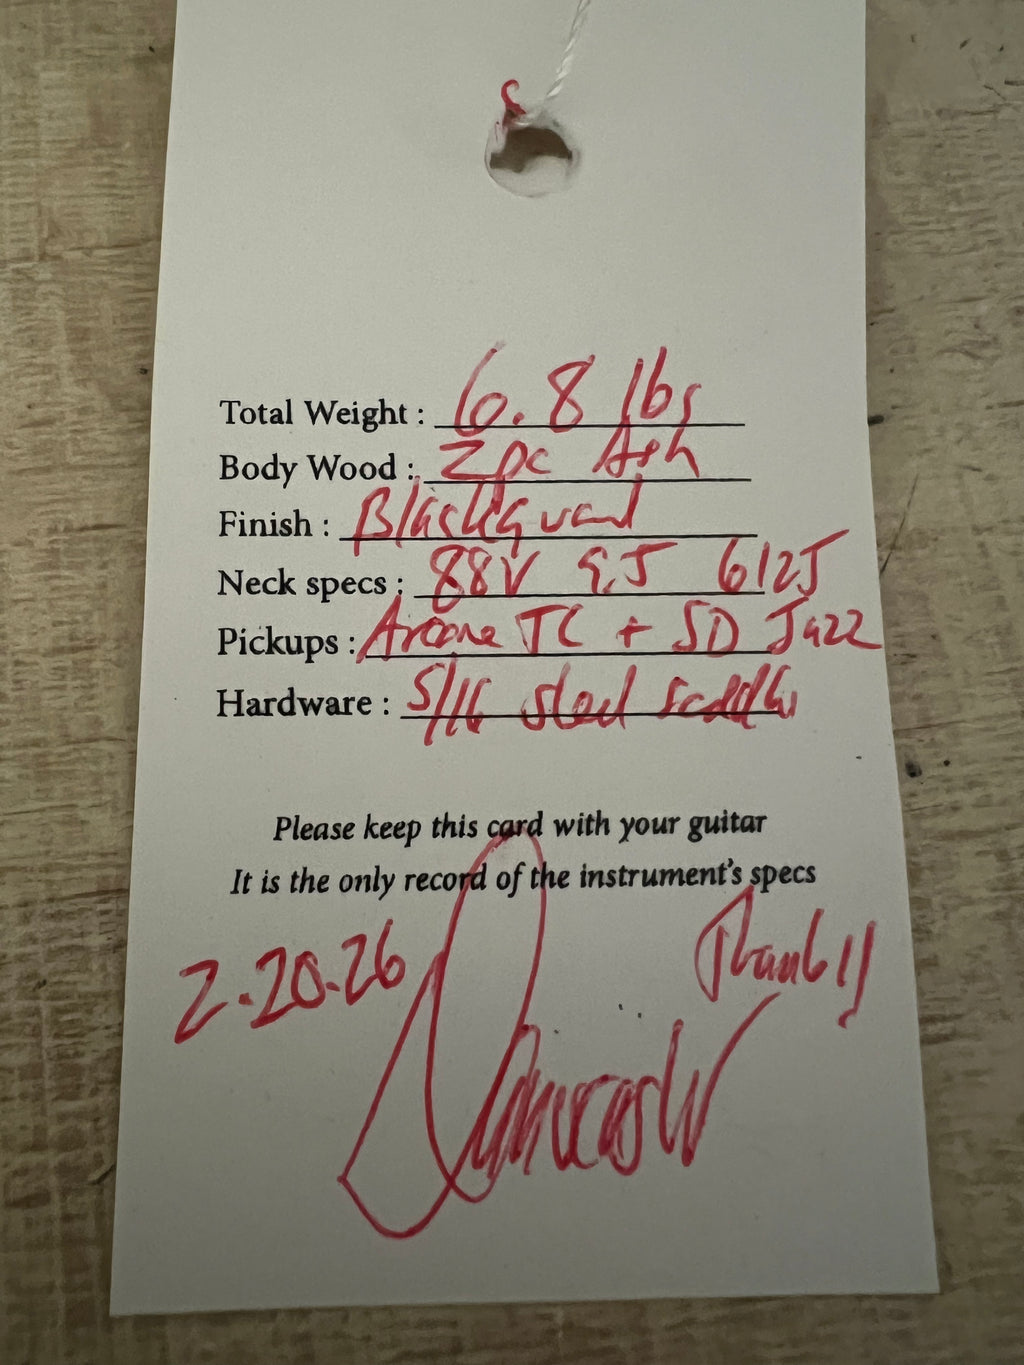 Total Weight : 6.8 lbs
Body Wood : 2pc Ash
Finish : Blackguard
Neck specs : 88V 9.5 6125
Pickups : Arcane TC + SD Jazz
Hardware : 5/16 steel saddles
Please keep this card with your guitar
It is the only record of the instrument's specs
2.20.26
Thanks!!